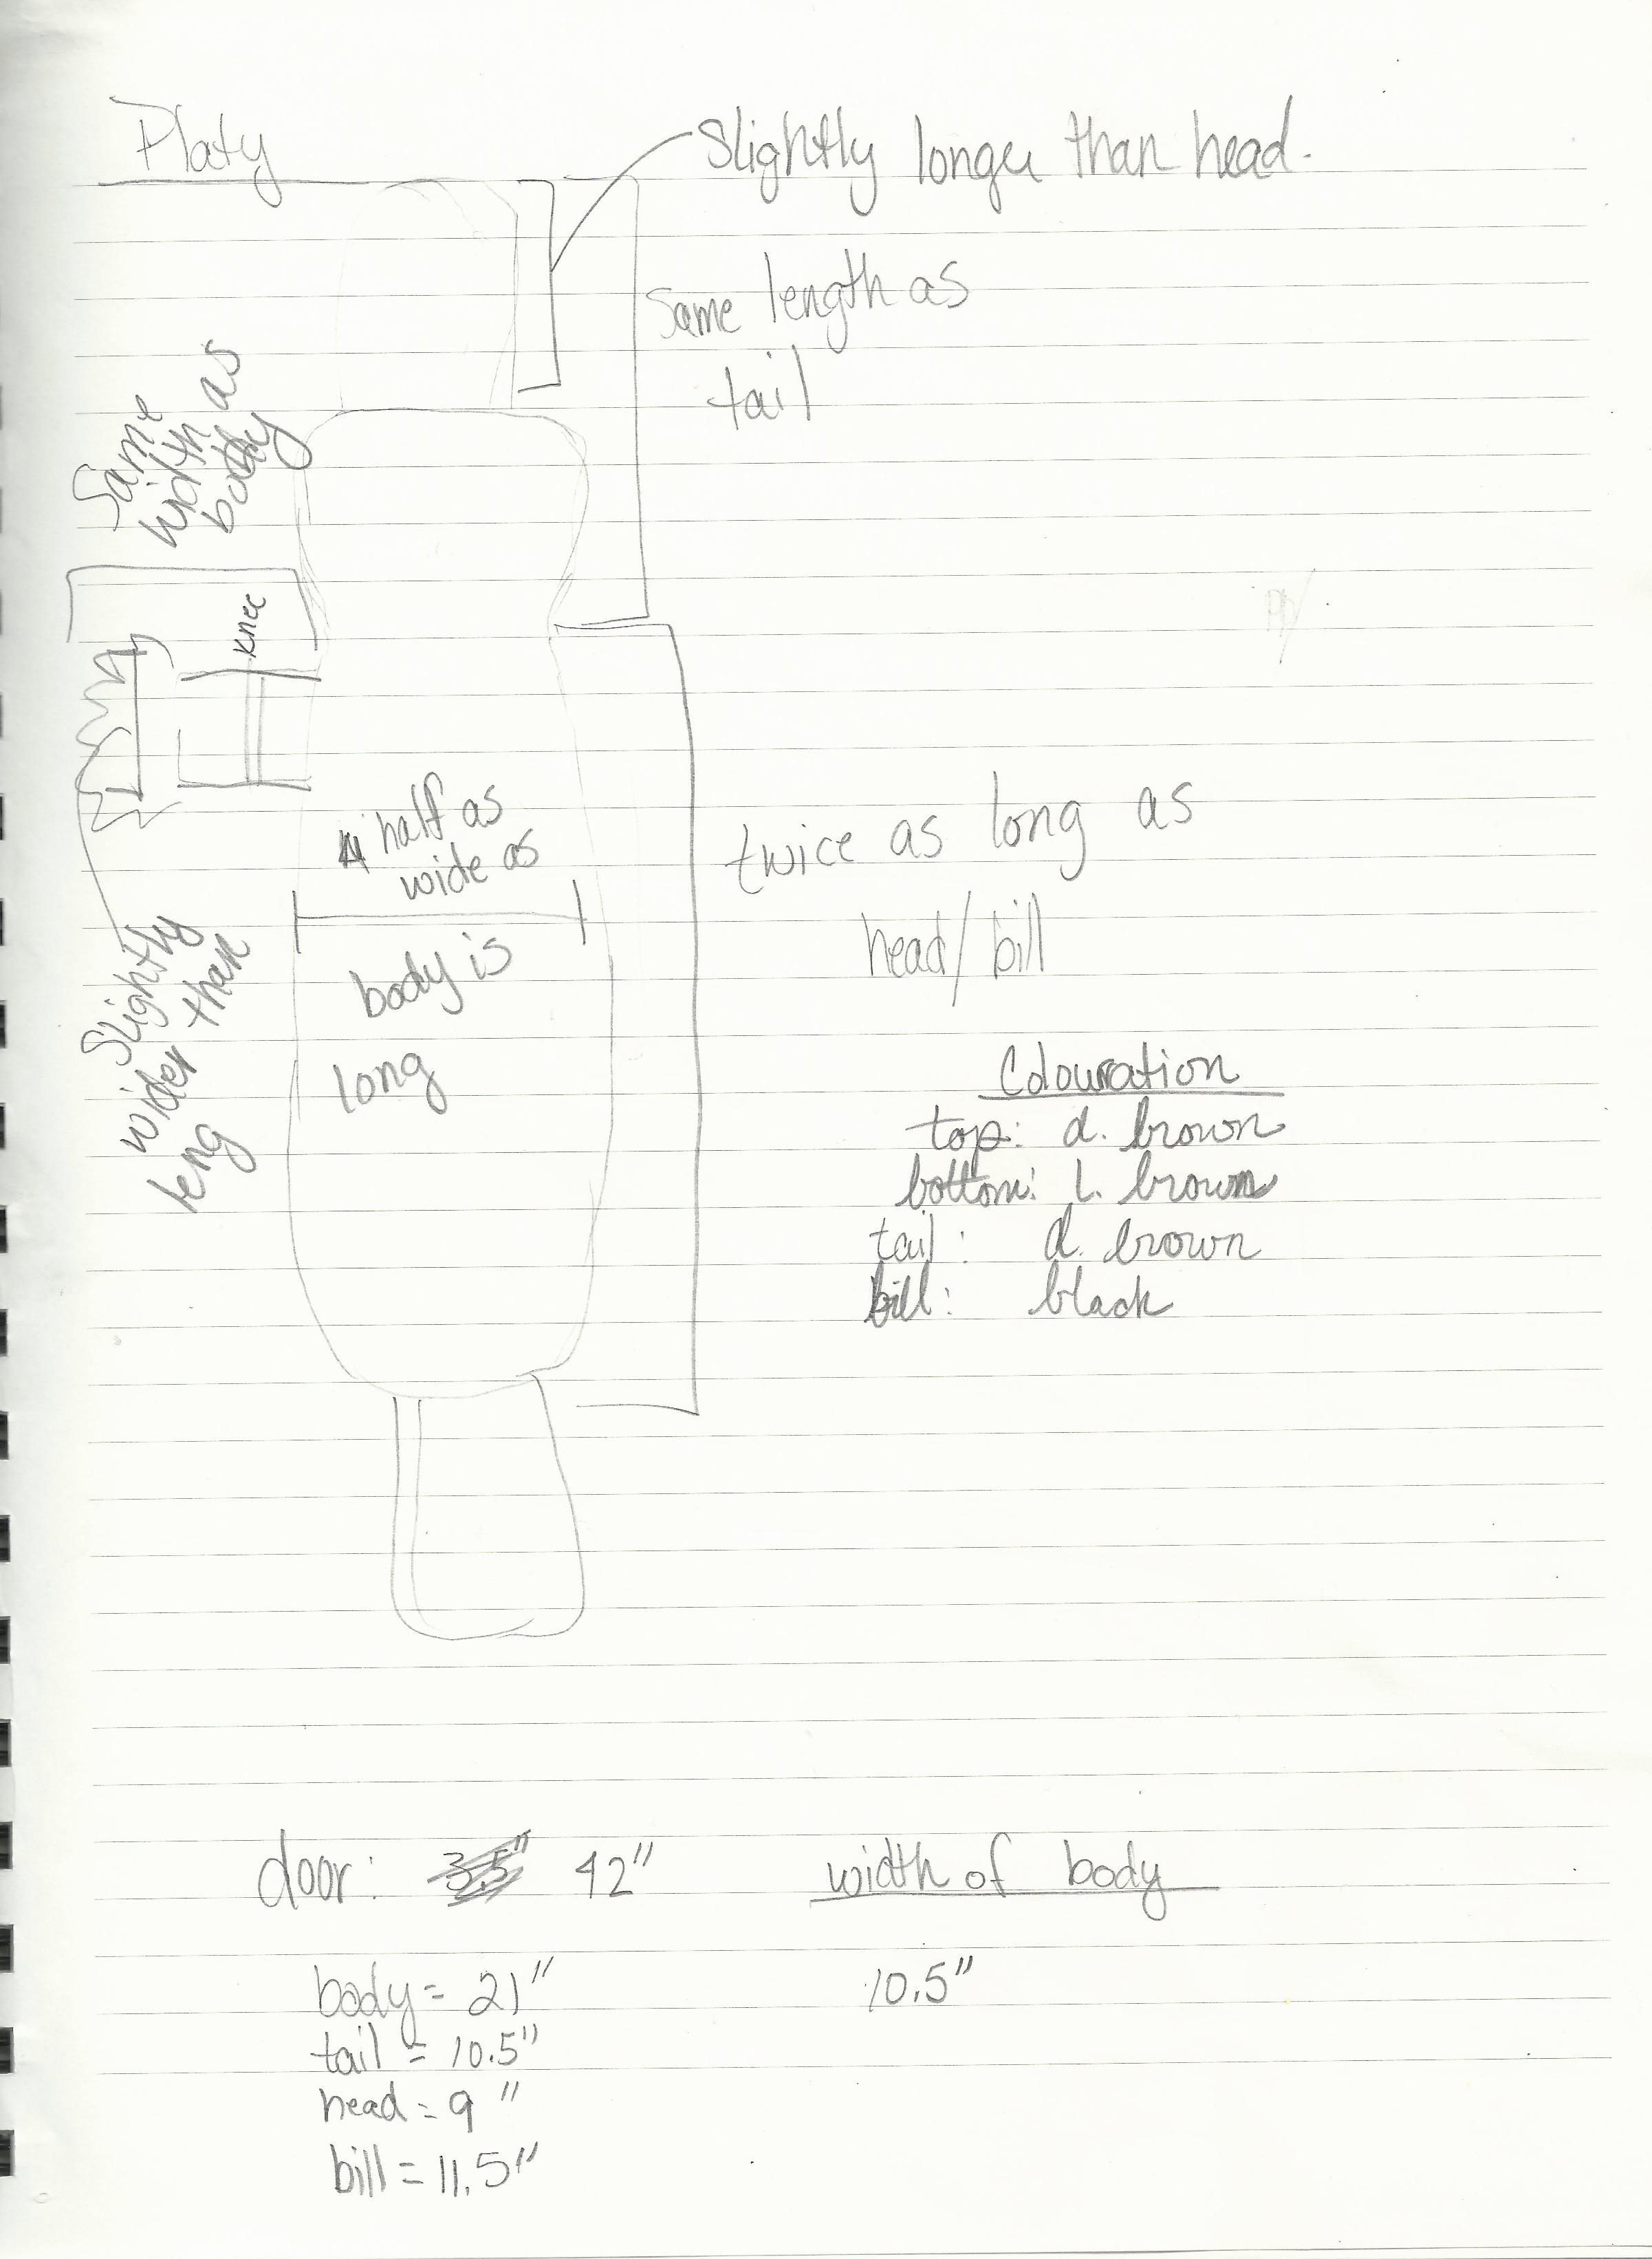 Platy
Slightly longer than head.
Same length as
tail
Same
width as
body
knee
half as
wide as
body is
long
twice as long as
head/bill
Slightly
wider than
leng
Colouration
top: d. brown
bottom: l. brown
tail: d. brown
bill: black
door: 35" 42"
width of body
body = 21"
10.5"
tail = 10.5"
head = 9"
bill = 11.5"